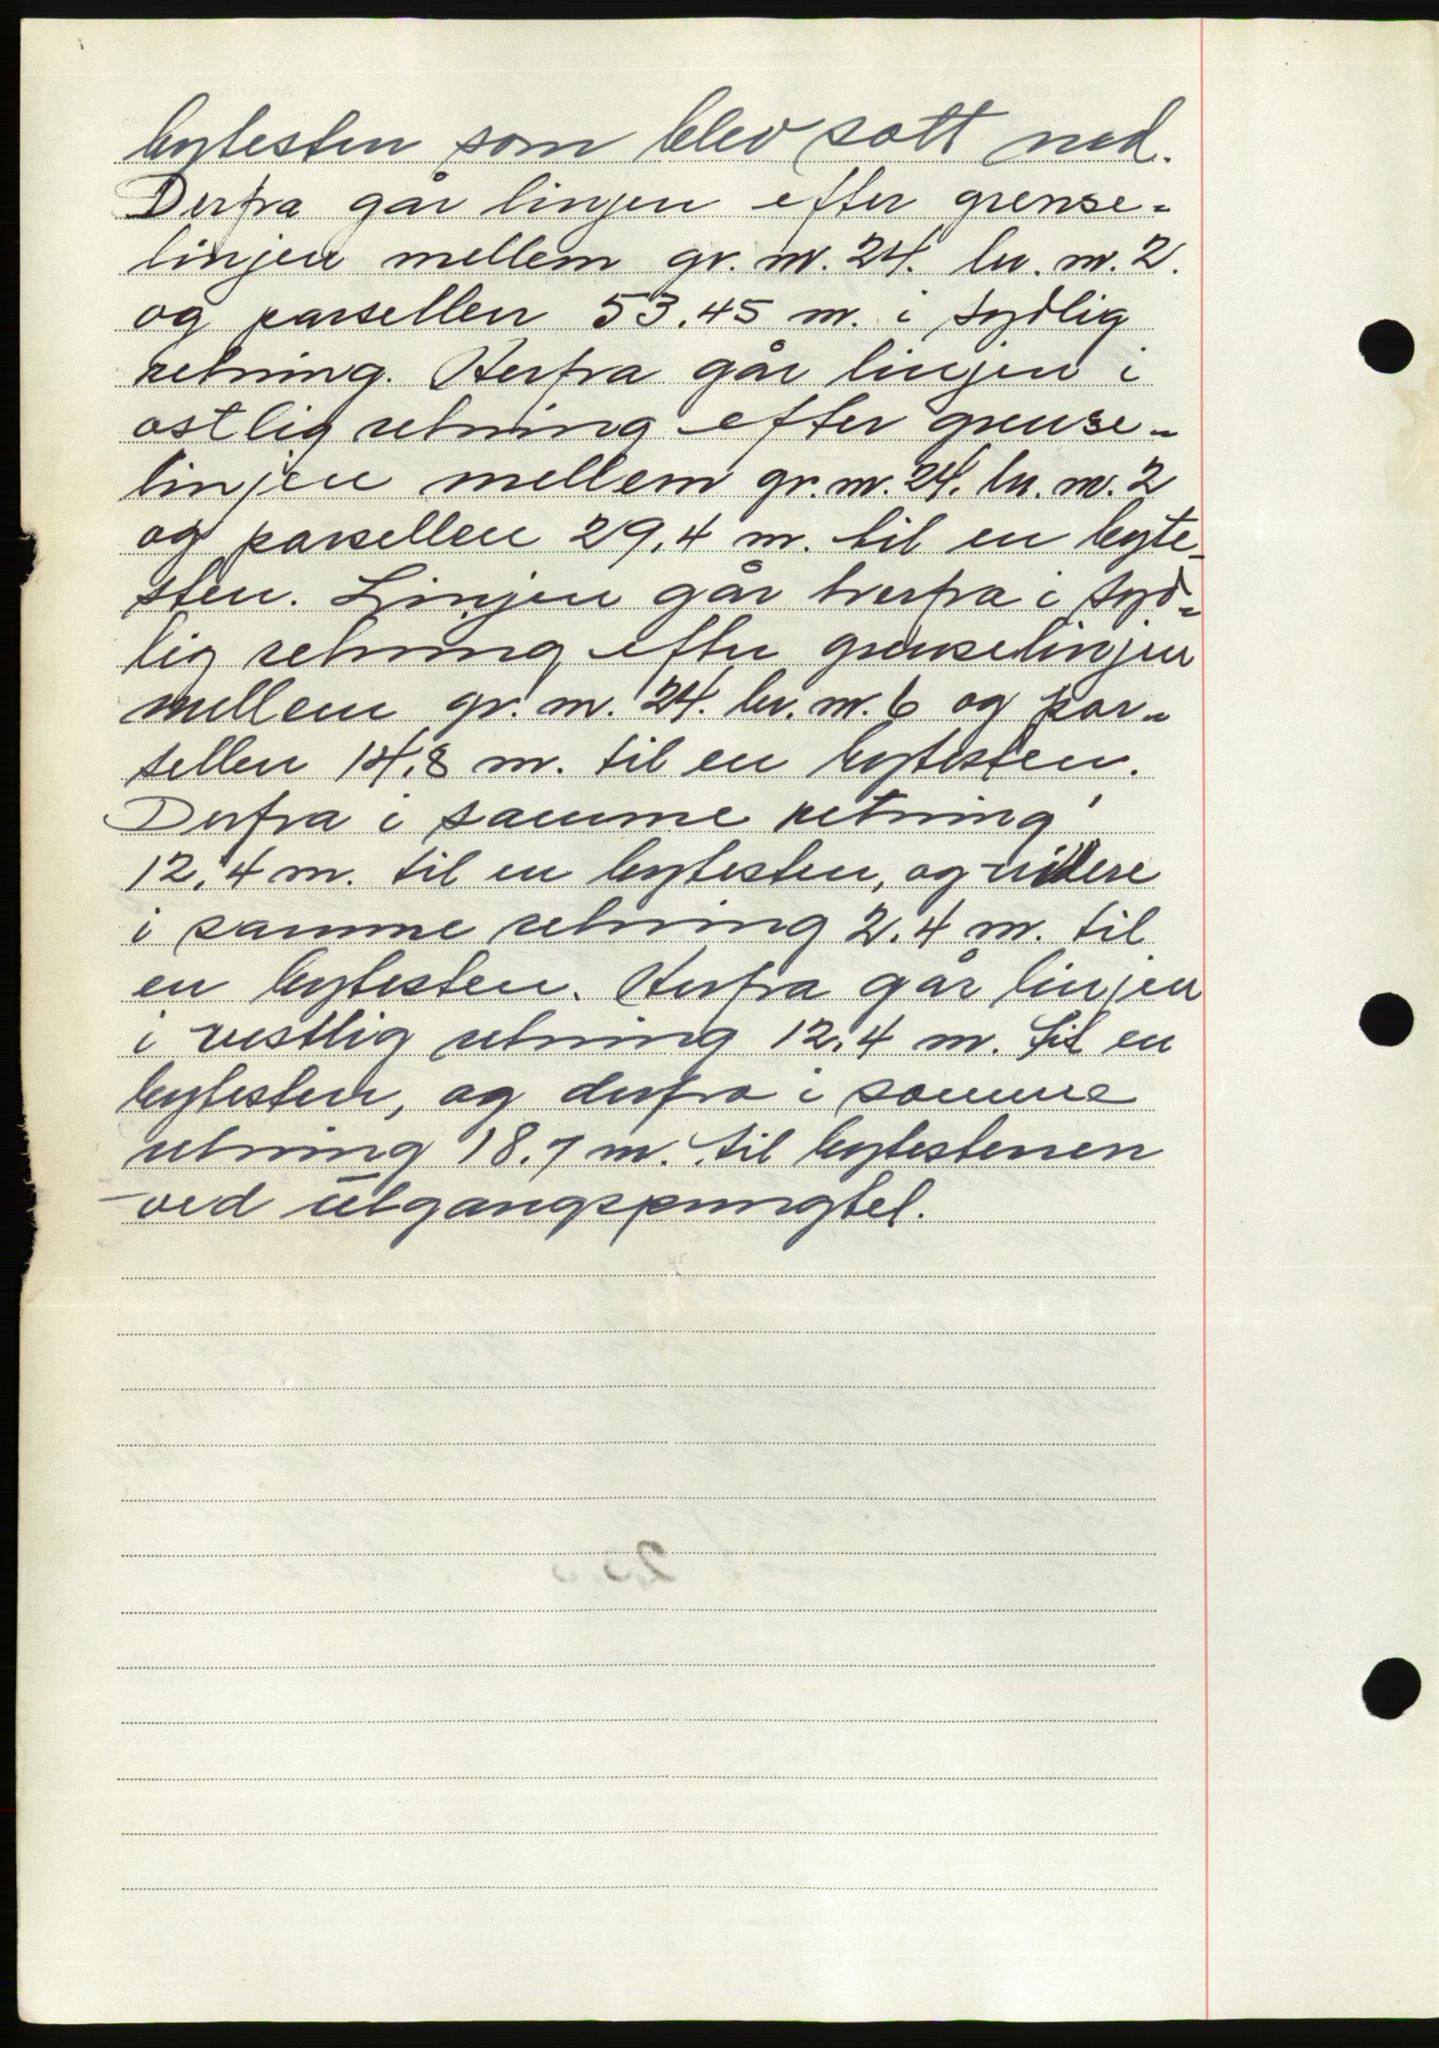 bytesten som blev satt ned.
Derfra går linjen efter grense-
linjen mellem gr. nr. 24. br. nr. 2.
og parsellen 53.45 m. i sydlig
retning. Herfra går linjen i
østlig retning efter grense-
linjen mellem gr. nr. 24. br. nr. 2
og parsellen 29.4 m. til en byte-
sten. Linjen går herfra i syd-
lig retning efter grenselinjen
mellem gr. nr. 24. br. nr. 6 og par-
sellen 14.8 m. til en bytesten.
Derfra i samme retning
12.4 m. til en bytesten, og videre
i samme retning 2.4 m. til
en bytesten. Herfra går linjen
i vestlig retning 12.4 m. til en
bytesten, og derfra i samme
retning 18.7 m. til bytestenen
ved utgangspungtet.